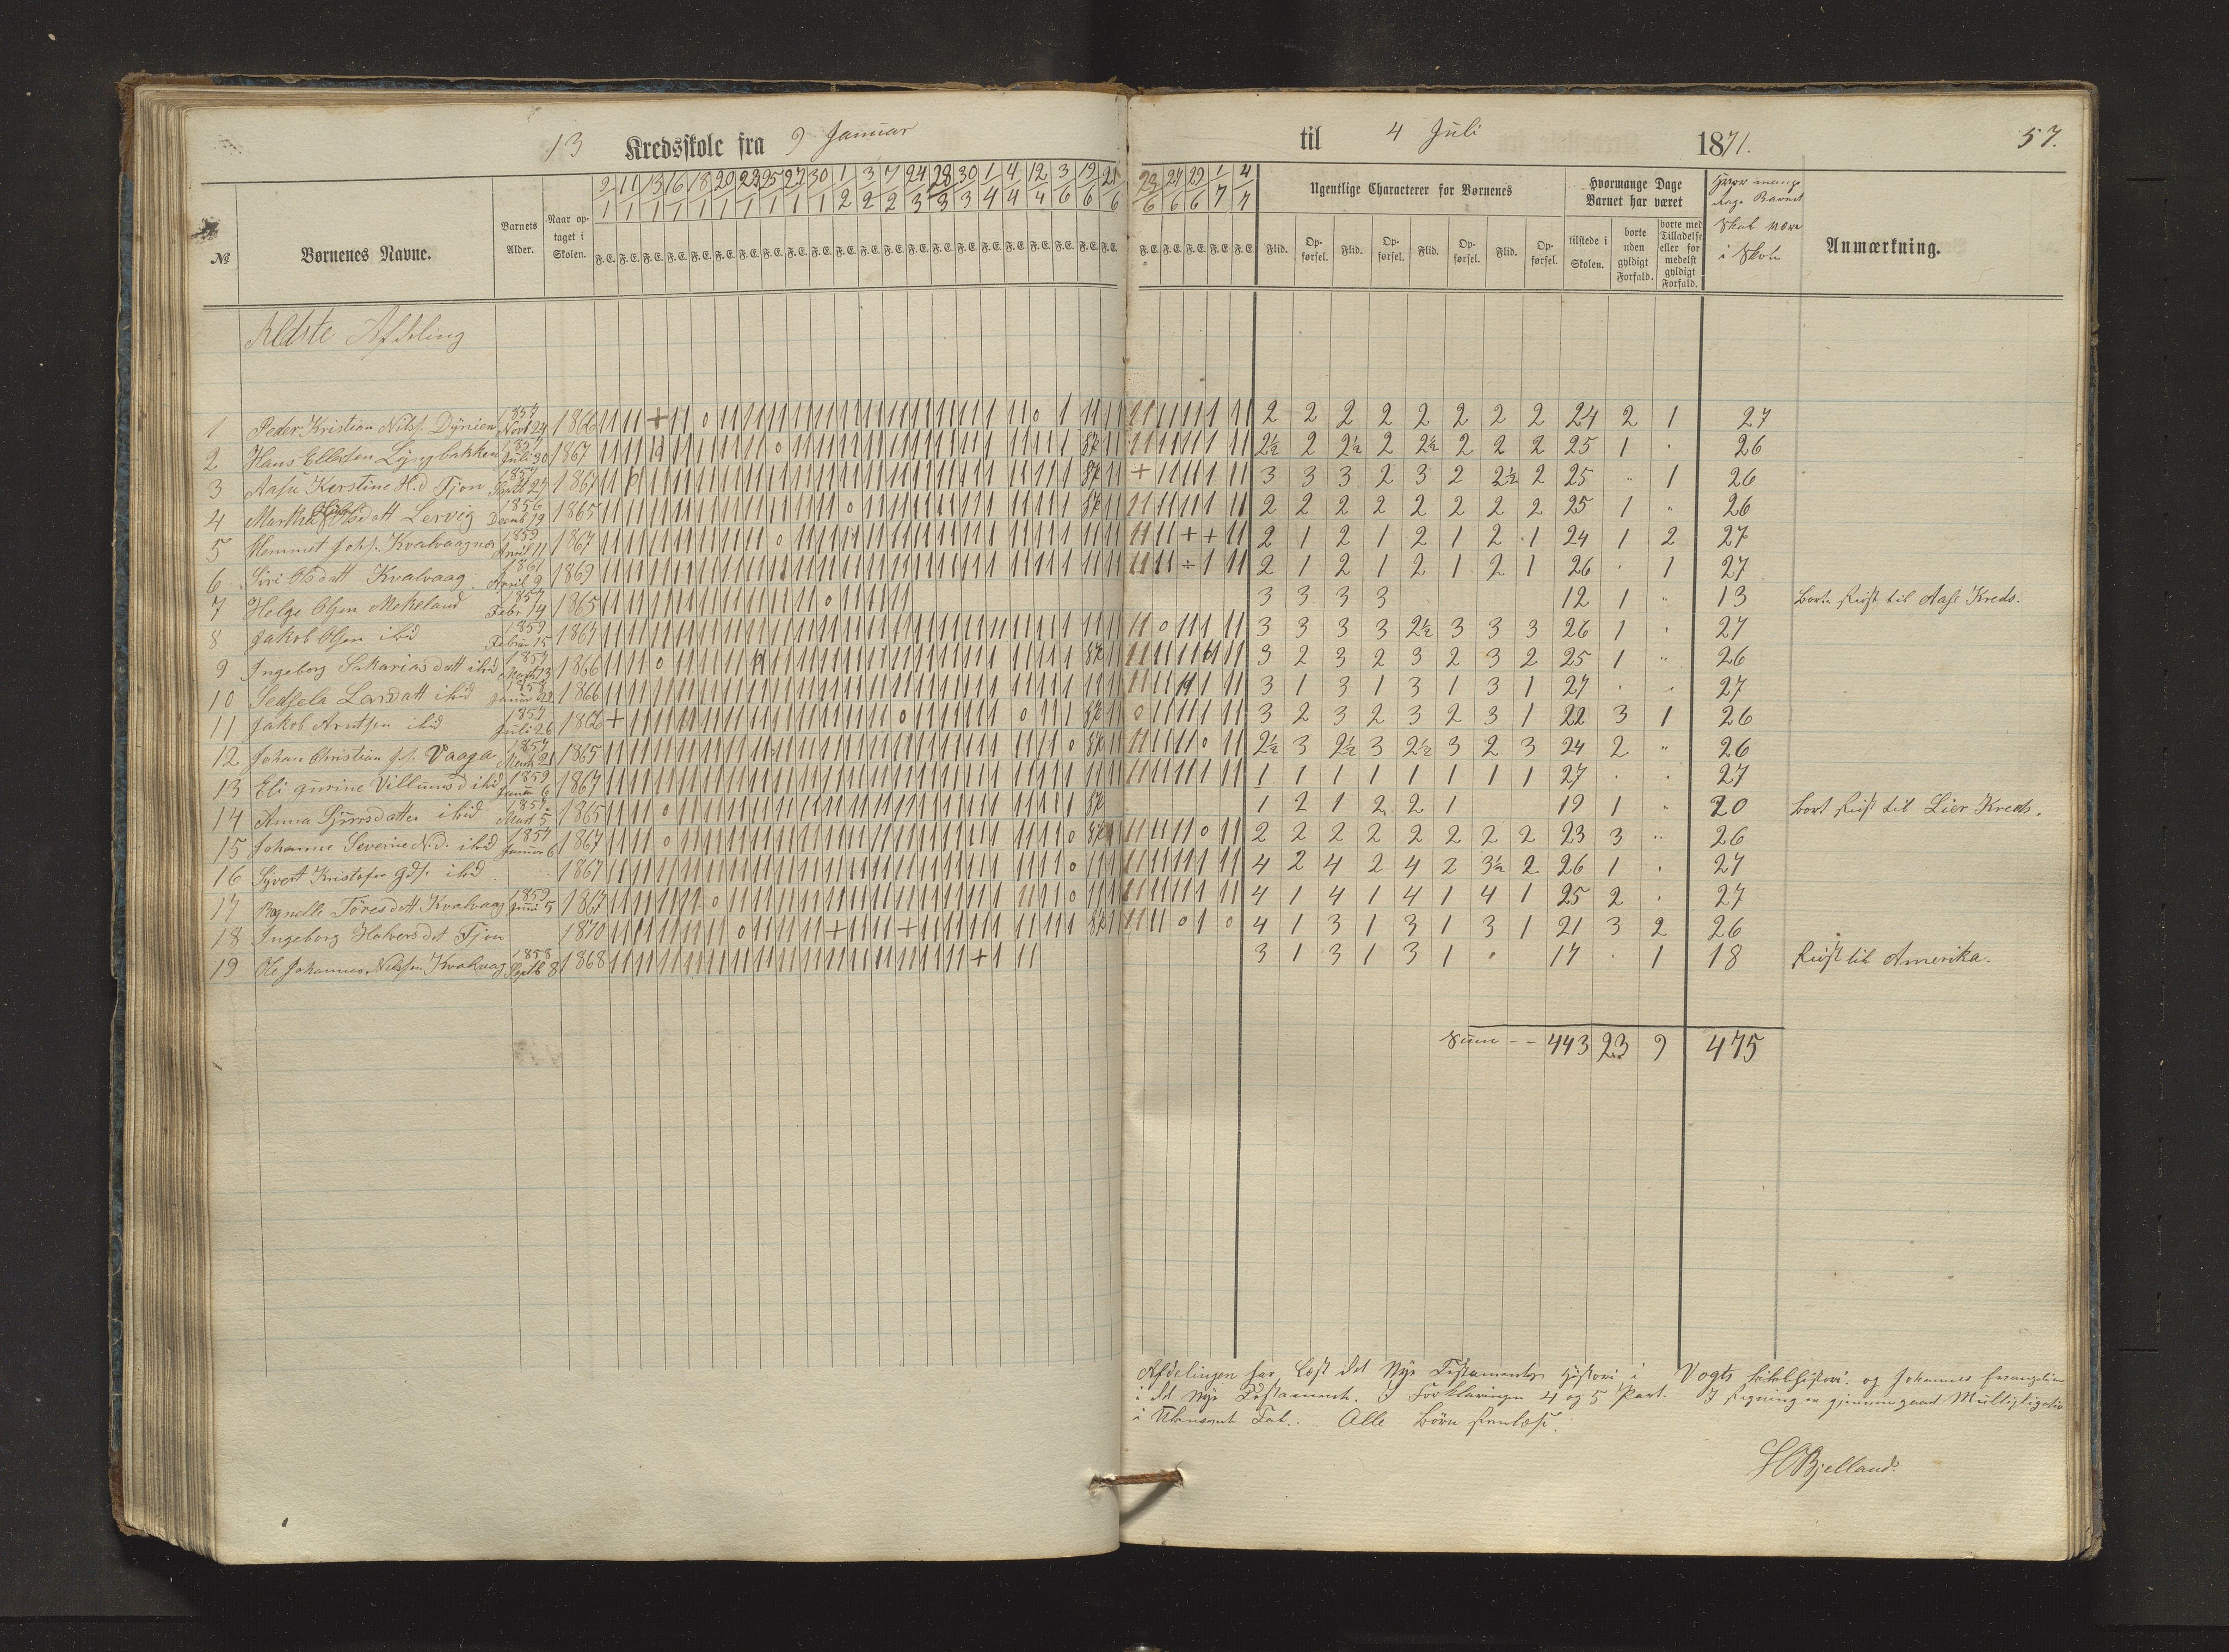 13 Kredsskole fra 9 Januar til 4 Juli 1871. 57.
№ Børnenes Navne. Barnets Alder. Naar optaget i Skolen. Ugentlige Characterer for Børnenes Hvormange Dage Barnet har været Hvor mange dage Barnet skal være i Skole Anmærkning.
9/1 11/1 13/1 16/1 18/1 20/1 23/1 25/1 27/1 30/1 1/2 3/2 7/2 24/3 28/3 30/3 1/4 4/4 12/4 3/6 19/6 21/6 23/6 27/6 29/6 1/7 4/7
F. E. F. E. F. E. F. E. F. E. F. E. F. E. F. E. F. E. F. E. F. E. F. E. F. E. F. E. F. E. F. E. F. E. F. E. F. E. F. E. F. E. F. E. F. E. F. E. F. E. F. E. F. E.
Flid. Opførsel. Flid. Opførsel. Flid. Opførsel. Flid. Opførsel. tilstede i Skolen. borte uden gyldigt Forfald. borte med Tilladelse eller for medelst gyldigt Forfald.
Ældste Afdeling
1 Peder Kristian Nils. 1857 Novb 24 1866 2 2 2 2 2 2 2 2 24 2 1 27
2 Hans Ellertsen Lyngbakken 1857 Juli 30 1867 2½ 2 2½ 2 2½ 2 2 2 25 1 " 26
3 Aasa Kerstine H.d Tjøn 1857 Septb 27 1867 3 3 3 2 3 2 2½ 2 25 " 1 26
4 Martha Olsdatt Lervig 1856 Decmb 19 1865 2 2 2 2 2 2 2 2 25 1 " 26
5 Johs. Kvalvaagnes 1859 April 11 1867 2 1 2 1 2 1 2 1 24 1 2 27
6 Siri Olsdatt Kvalvaag 1861 April 9 1869 2 1 2 1 2 1 2 1 26 . 1 27
7 Helge Olsen Mekeland 1857 Febr 14 1865 3 3 3 3 12 1 " 13 Bort reist til Aase Kreds.
8 Jakob Olsen ibid 1859 Februa 15 1867 3 3 3 3 2½ 3 3 3 26 1 . 27
9 Ingeborg Sakariasdatt ibid 1857 Marts 13 1866 3 2 3 2 3 2 3 2 25 1 " 26
10 Larsdatt ibid Januar 22 1866 3 1 3 1 3 1 3 1 27 . . 27
11 Jakob Arntsen ibid 1857 Juli 26 1866 3 2 3 2 3 2 3 1 22 3 1 26
12 Johan Christian Vaaga 1857 Marts 21 1865 2½ 3 2½ 3 2½ 3 2 3 24 2 " 26
13 Eli Gurine Villumsd ibid 1859 Janua 6 1867 1 1 1 1 1 1 1 1 27 . . 27
14 Anna ibid 1857 Marts 5 1865 1 2 1 2 2 1 19 1 " 20 Bort reist til Lier Kreds.
15 Johanne Severine N.d. ibid 1857 Januar 6 1867 2 2 2 2 2 2 2 2 23 3 " 26
16 Sivert Kristofer ibid 1867 4 2 4 2 4 2 3½ 2 26 1 . 27
17 Ragnelle Töresdatt Kvalvaag 1859 Juni 5 1867 4 1 4 1 4 1 4 1 25 2 . 27
18 Ingeborg Halversdat Tjøn 1870 4 1 3 1 3 1 3 1 21 3 2 26
19 Ole Johannes Nilssen Kvalvaag 1858 Septb 8 1868 3 1 3 1 3 1 " 17 . 1 18 Reist til Amerika.
Sum - - 443 23 9 475
Afdelingen har læst det Nye Testamentes Historie i Vogts Bibelhistorie og Johannes Evangelium
i det Nye Testamente. I Forklaringen 4 og 5 Part. I Regning er gjennemgaaet Multiplication
i Ubenævnte Tal. Alle Børn
Bjelland.